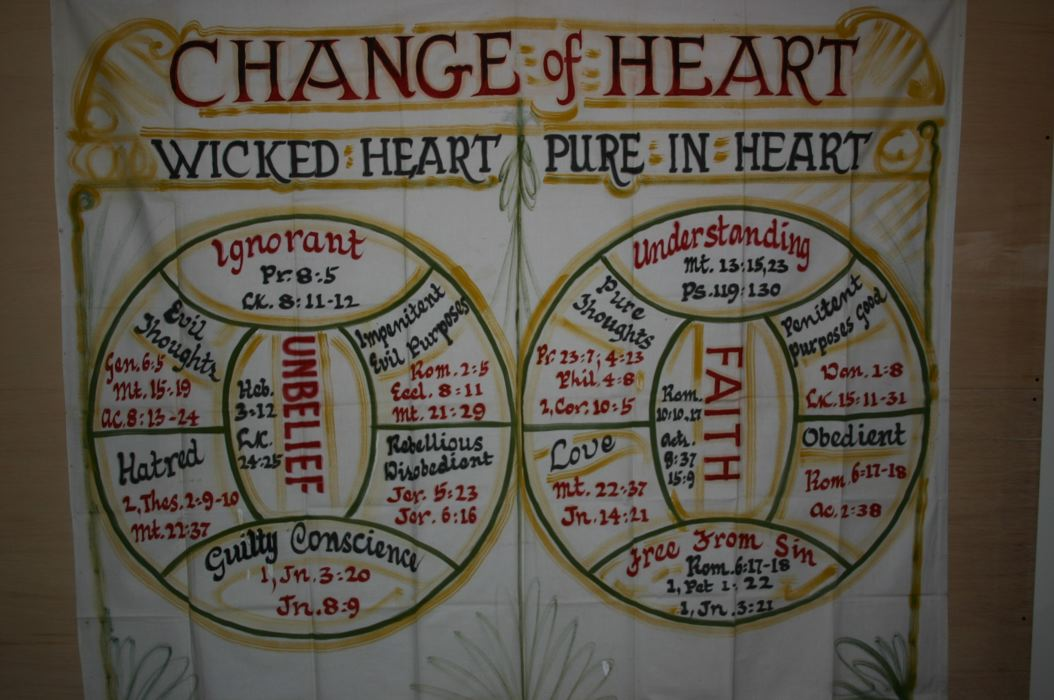 CHANGE of HEART
WICKED HEART
PURE IN HEART
Ignorant
Pr. 8:5
Lk. 8:11-12
Evil
Thoughts
Gen. 6:5
Mt. 15:19
Ac. 8:13-24
Heb.
3:12
Lk.
24:25
UNBELIEF
Impenitent
Evil Purposes
Rom. 2:5
Eccl. 8:11
Mt. 21:29
Hatred
2, Thes. 2:9-10
Mt. 22:37
Rebellious
Disobedient
Jer. 5:23
Jer. 6:16
Guilty Conscience
1, Jn. 3:20
Jn. 8:9
Understanding
Mt. 13:15,23
Ps. 119:130
Pure
Thoughts
Pr. 23:7; 4:23
Phil. 4:8
2, Cor. 10:5
Rom.
10:10,17
Act.
8:37
15:9
FAITH
Penitent
purposes Good
Dan. 1:8
Lk. 15:11-31
Love
Mt. 22:37
Jn. 14:21
Obedient
Rom. 6:17-18
Ac. 2:38
Free From Sin
Rom. 6:17-18
1, Pet 1:22
1, Jn. 3:21